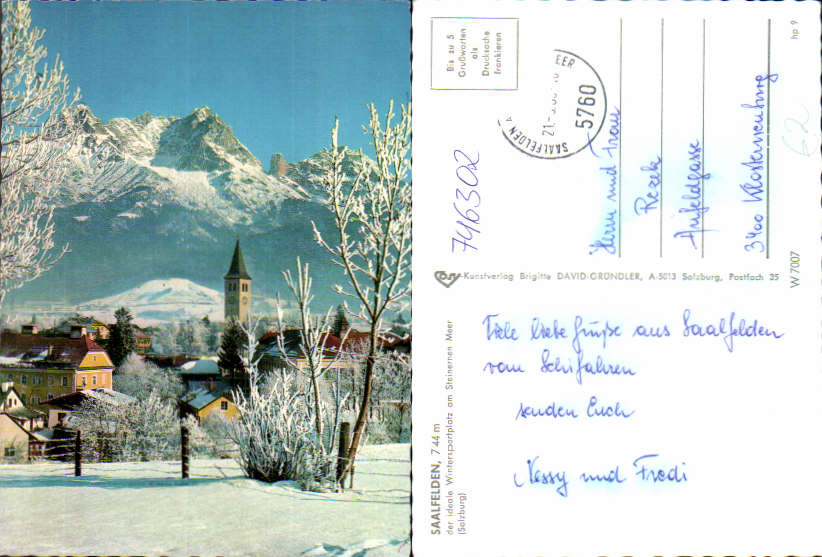 Bis zu 5
Grußworten
als
Drucksache
frankieren
hp 9
5760 SAALFELDEN
746302
Herrn und Frau
Rezek
Anfeldgasse
3400 Klosterneuburg
62
Kunstverlag Brigitte DAVID-GRÜNDLER, A-5013 Salzburg, Postfach 25
W 7007
SAALFELDEN, 744 m
der ideale Wintersportplatz am Steinernen Meer
(Salzburg)
Viele liebe Grüße aus Saalfelden
vom Schifahren
senden Euch
Nessy und Fredi